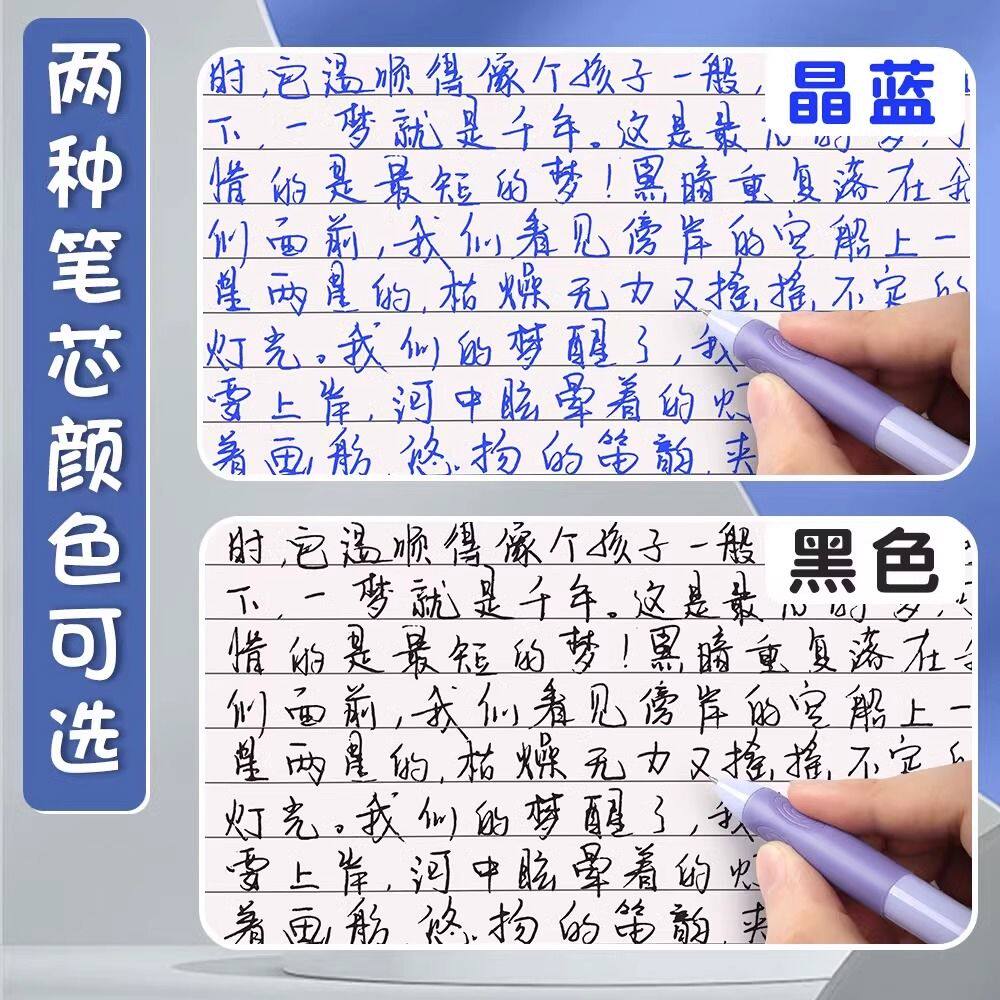 两种笔芯颜色可选
晶蓝
时,它温顺得像个孩子一般,
下,一梦就是千年。这是最
惜的是最短的梦!黑暗重复落在我
们面前,我们看见傍岸的空船上一
星两星的,枯燥无力又摇摇不定的
灯光。我们的梦醒了,我
要上岸,河中眩晕着的灯
着画舫,悠扬的笛韵,夹
黑色
时,它温顺得像个孩子一般
下,一梦就是千年。这是最
惜的是最短的梦!黑暗重复落在
们面前,我们看见傍岸的空船上一
星两星的,枯燥无力又摇摇不定的
灯光。我们的梦醒了,我
要上岸,河中眩晕着的灯
着画舫,悠扬的笛韵,夹